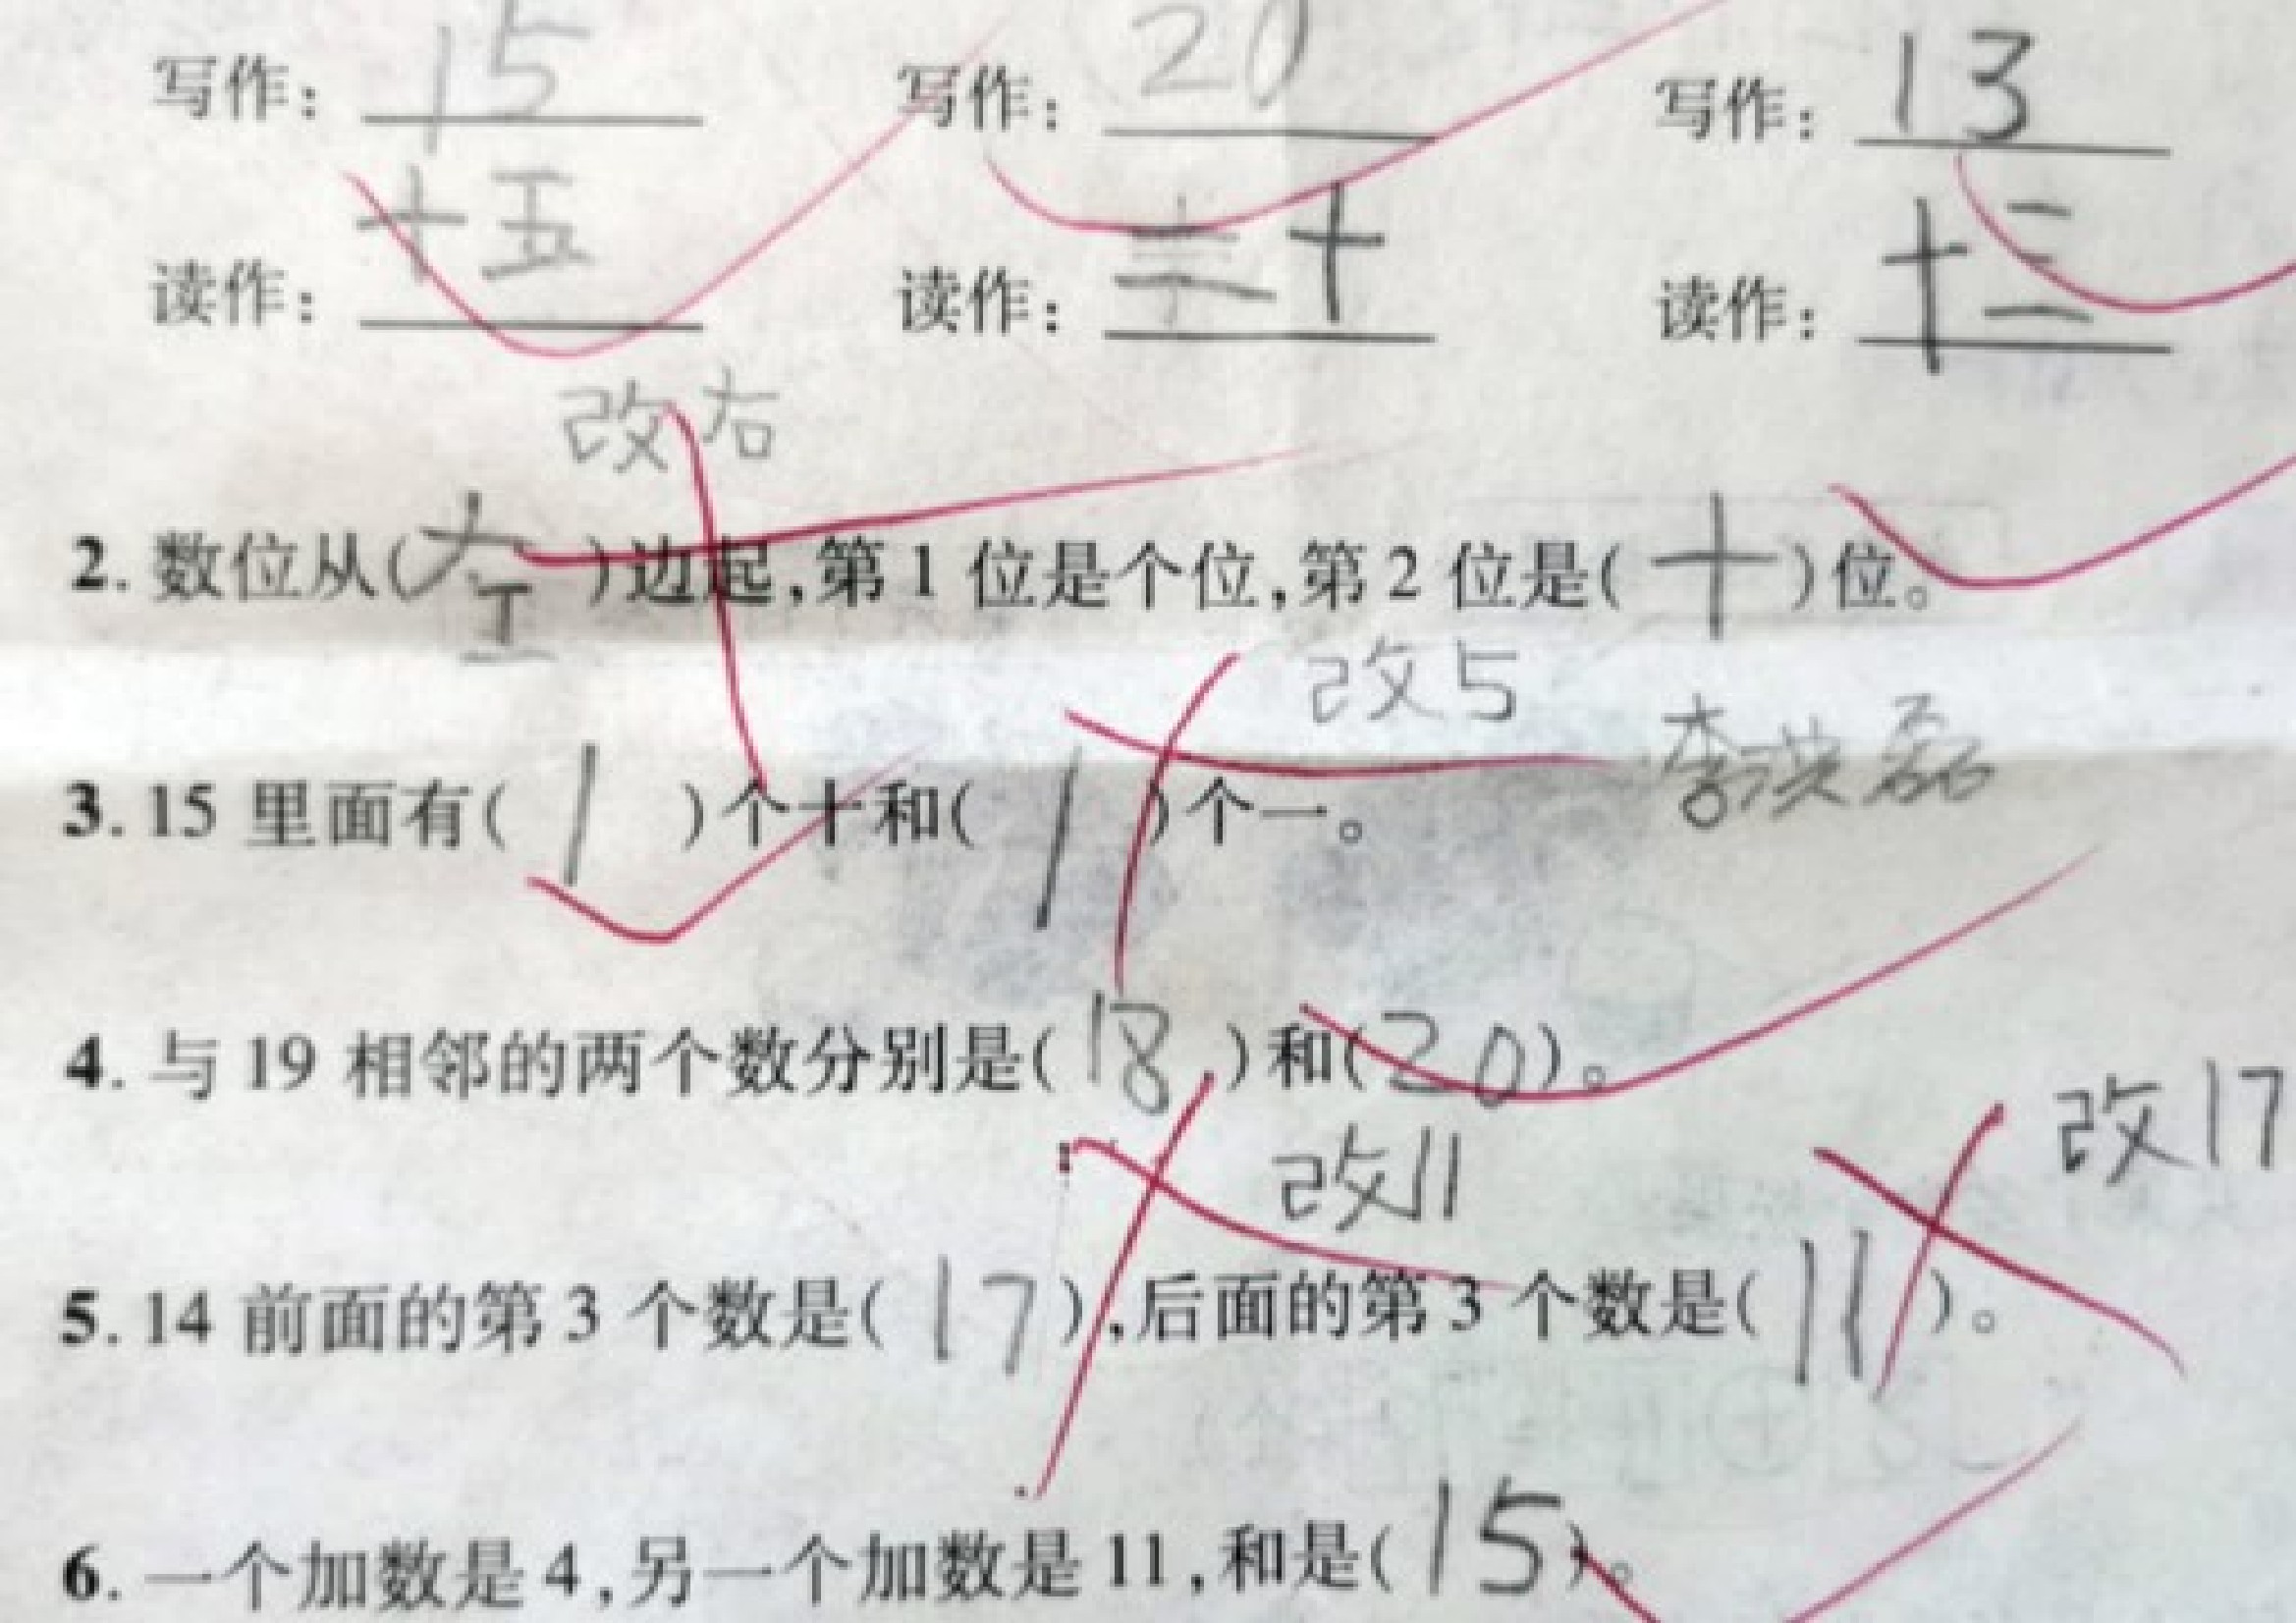 写作：15 写作：20 写作：13
读作：十五 读作：二十 读作：十三
改右
2. 数位从(左)边起,第1位是个位,第2位是(十)位。
改5
李洪磊
3. 15里面有(1)个十和(1)个一。
4. 与19相邻的两个数分别是(18)和(20)。
改11 改17
5. 14前面的第3个数是(17),后面的第3个数是(11)。
6. 一个加数是4,另一个加数是11,和是(15)。